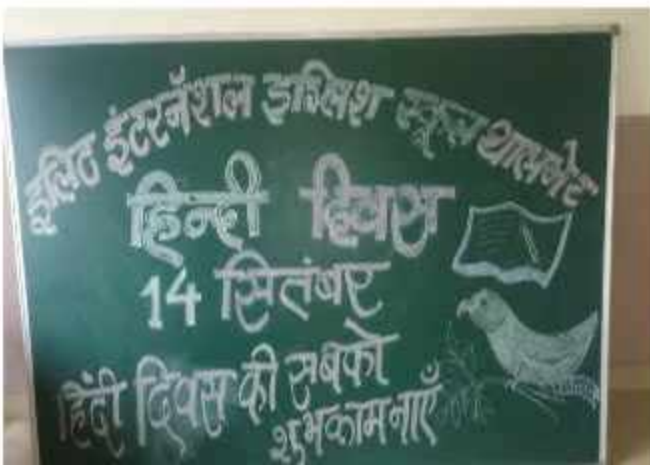 इलिट इंटरनॅशल इंग्लिश स्कूल थालनेर
हिन्दी दिवस
14 सितंबर
हिंदी दिवस की सबको
शुभकामनाएँ